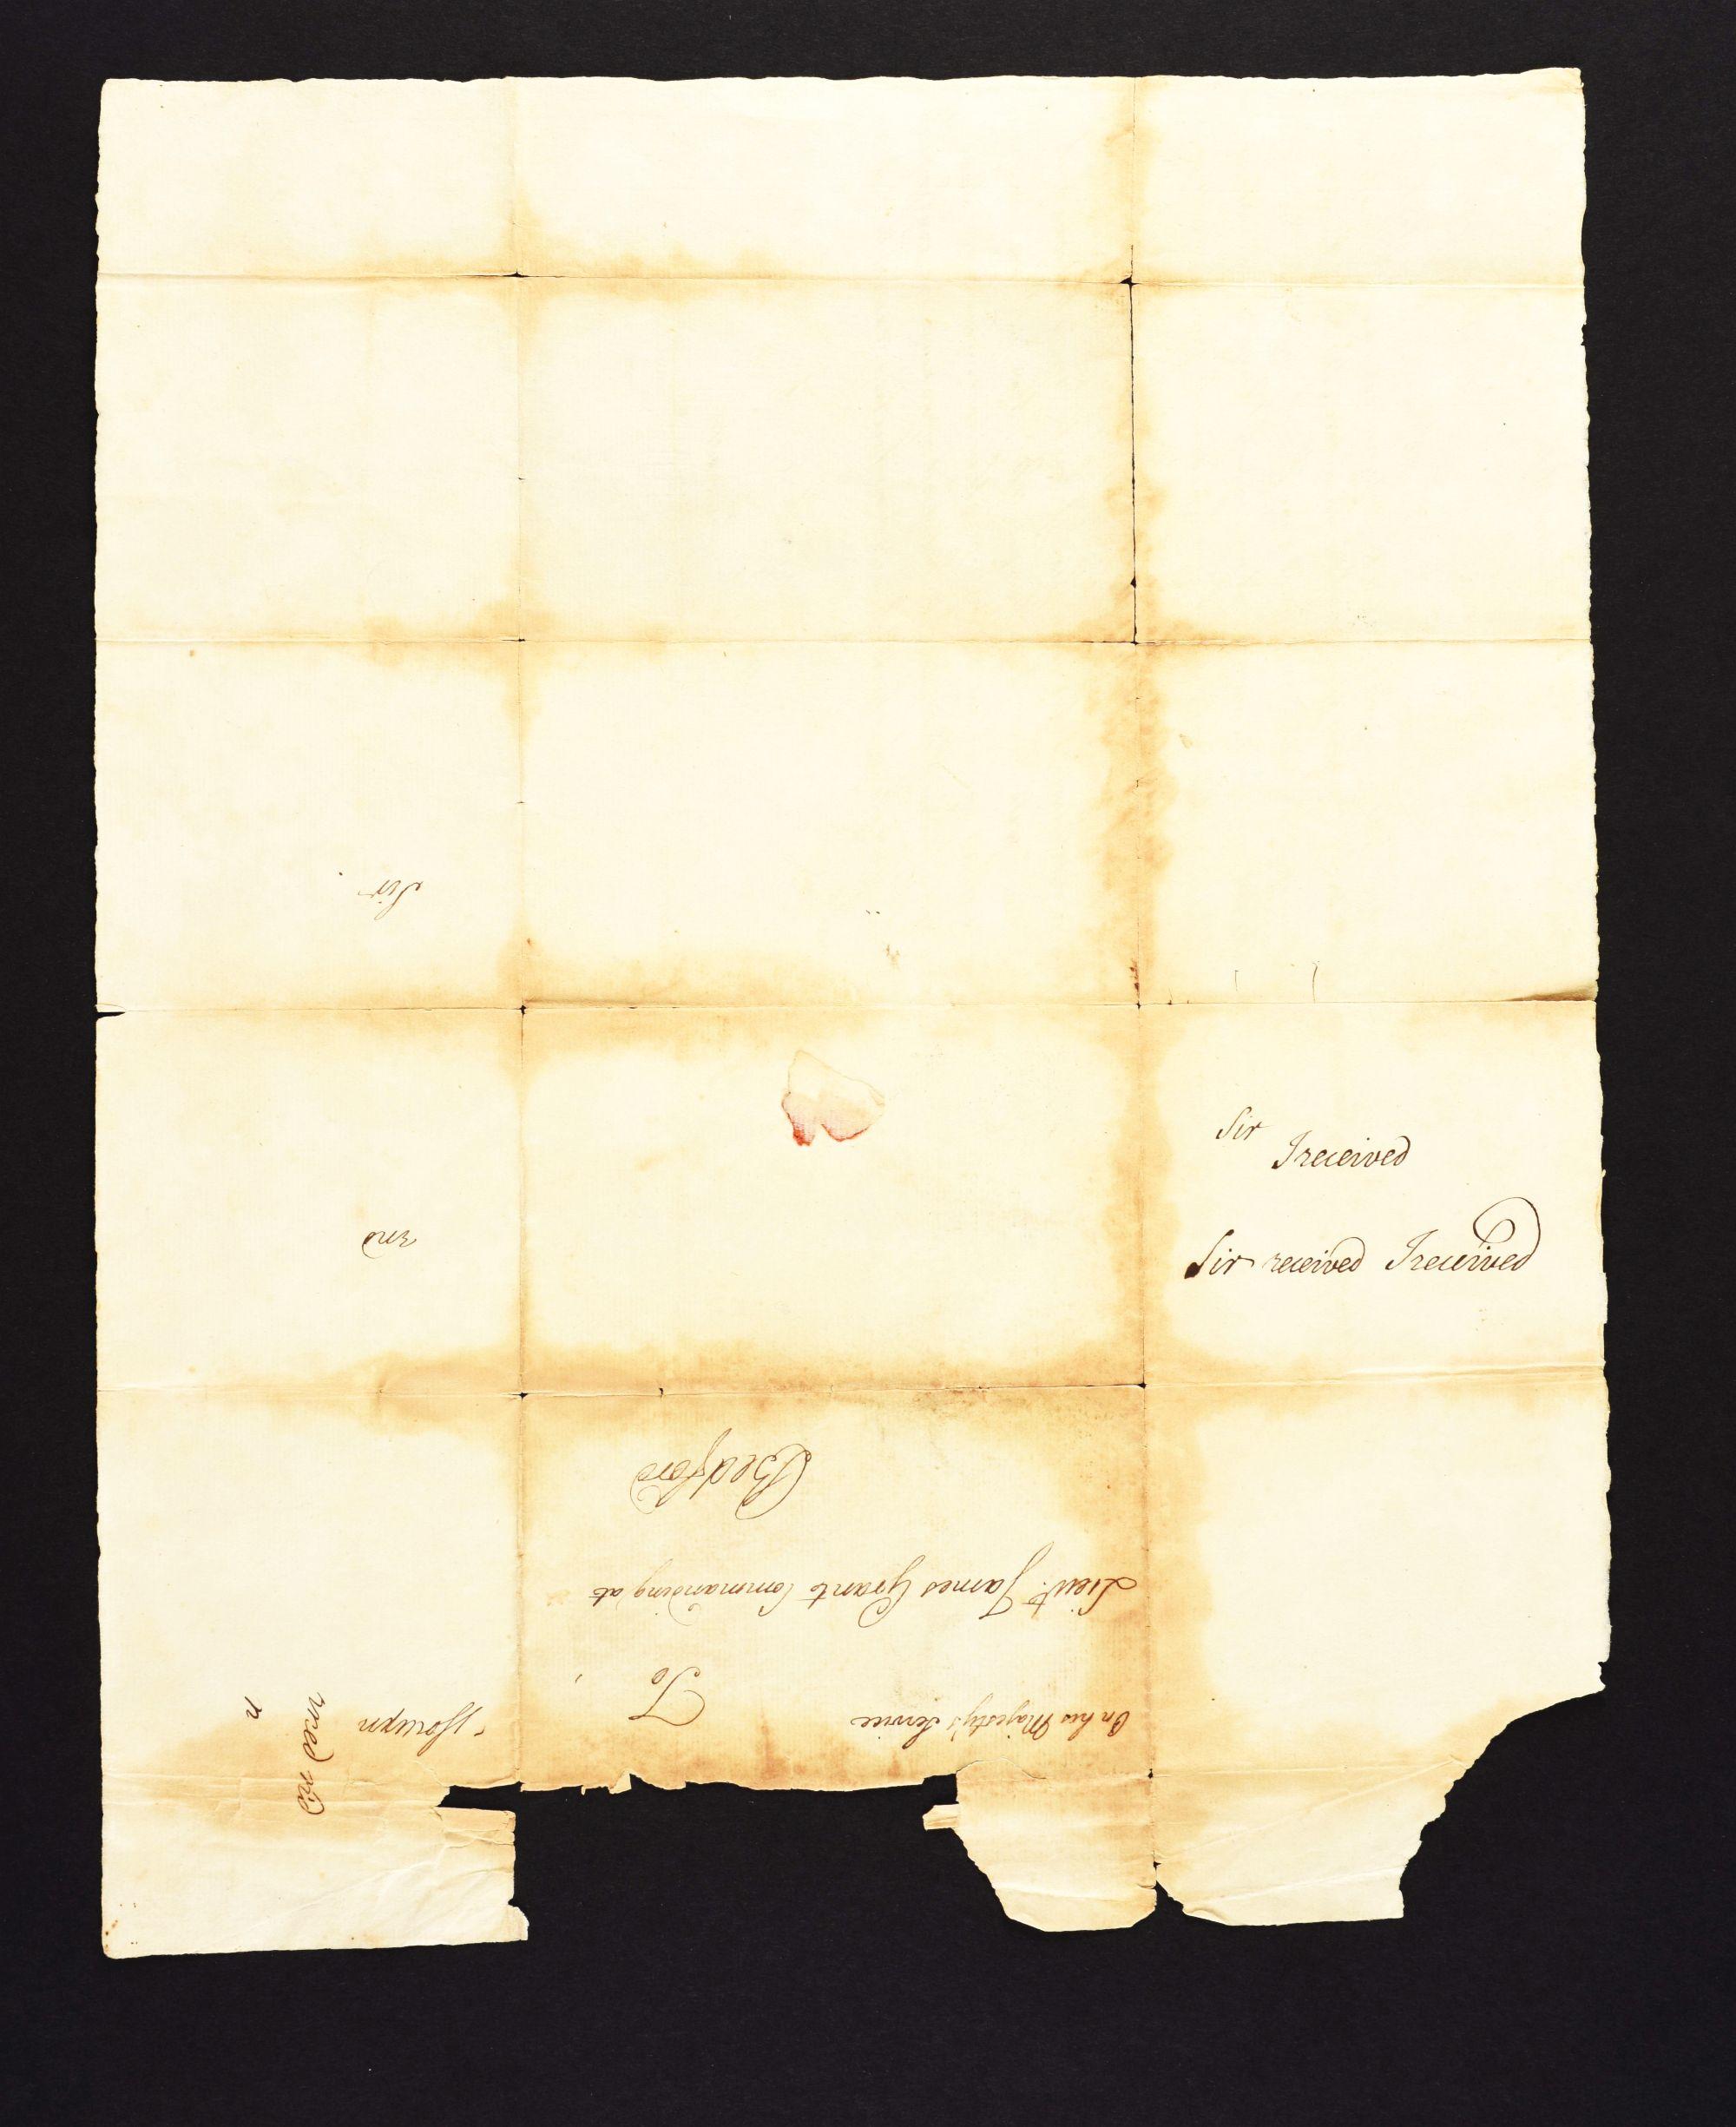 On his Majesty's Service
To
Lieut. James Grant Commanding at
Bedford
Sir
I received
Sir received I received
Sir